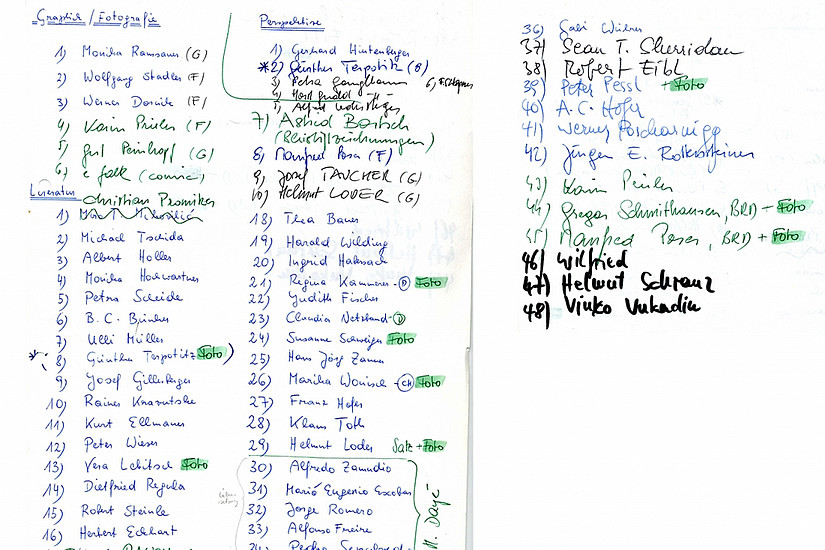 Graphik / Fotografie
1) Monika Ramsauer (G)
2) Wolfgang Stadler (F)
3) Werner (F)
4) Karin Pinler (F)
5) Peinhopf (G)
6) (comic)
Literatur
Christian Promitzer
1)
2) Michael Tschida
3) Albert Holler
4) Monika Harwartner
5) Petra Scheide
6) B.C. Bünker
7) Ulli Müller
* 8) Günther Terpotitz Foto)
9) Josef Gillesberger
10) Rainer
11) Kurt Ellmauer
12) Peter Wieser
13) Vera Lebitsch Foto
14) Dietfried Regula
15) Robert Steinle
16) Herbert Eckhart
Perspektive
1) Gerhard Hintenberger
*2) Günther Terpotitz (B)
3) Petra Ganglbauer
4)
5) Alfred
6)
7) Astrid Bartsch
(Bleistiftzeichnungen)
8) Manfred Posa (F)
9) Josef TAUCHER (G)
10) Helmut LODER (G)
18) Thea Bauer
19) Harald Wilding
20) Ingrid
21) Regina Kammerer - D Foto
22) Judith Fischer
23) Claudia Netzband - D
24) Susanne Schweiger Foto
25) Hans Jörg Zauner
26) Marika Wonisch - CH Foto
27) Franz Hofer
28) Klaus Toth
29) Helmut Loder Satz + Foto
30) Alfredo Zamudio
31) Mario Eugenio Escobar
32) Jorge Romero
33) Alfonso Freire
34) Pedro
M. Dayé
36) Gabi
37) Sean T. Sherridan
38) Robert Eibl
39) Peter Pessl + Foto
40) A.C. Hofer
41) Werner Poscharnigg
42) Jürgen E. Rottensteiner
43) Karin Pinler
44) Gregor Schnitthausen, BRD - Foto
45) Manfred Poser, BRD + Foto
46) Wilfried
47) Helmut Schranz
48) Vinko Vukadin